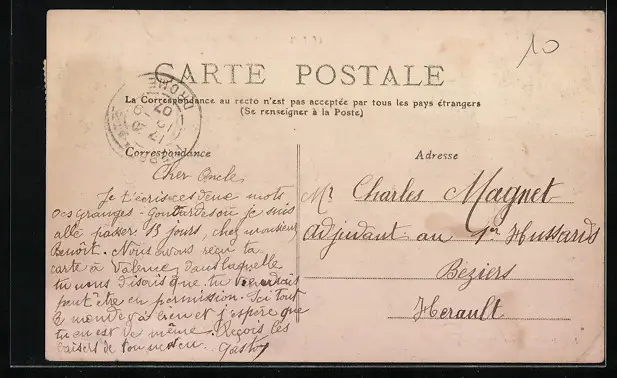 10
CARTE POSTALE
La Correspondance au recto n'est pas acceptée par tous les pays étrangers
(Se renseigner à la Poste)
DROME
Correspondance
Adresse
Cher Oncle,
Je t'écris ces deux mots
des Granges-Gontardes où je suis
allé passer 15 jours, chez monsieur
Benoît. Nous avons reçu ta
carte à Valence, dans laquelle
tu nous disais que tu viendrais
peut être en permission. Ici tout
le monde va bien et j'espère que
tu en est de même. Reçois les
baisers de ton neveu. Gaston
Mr Charles Magnet
adjudant au 1er Hussards
Béziers
Herault